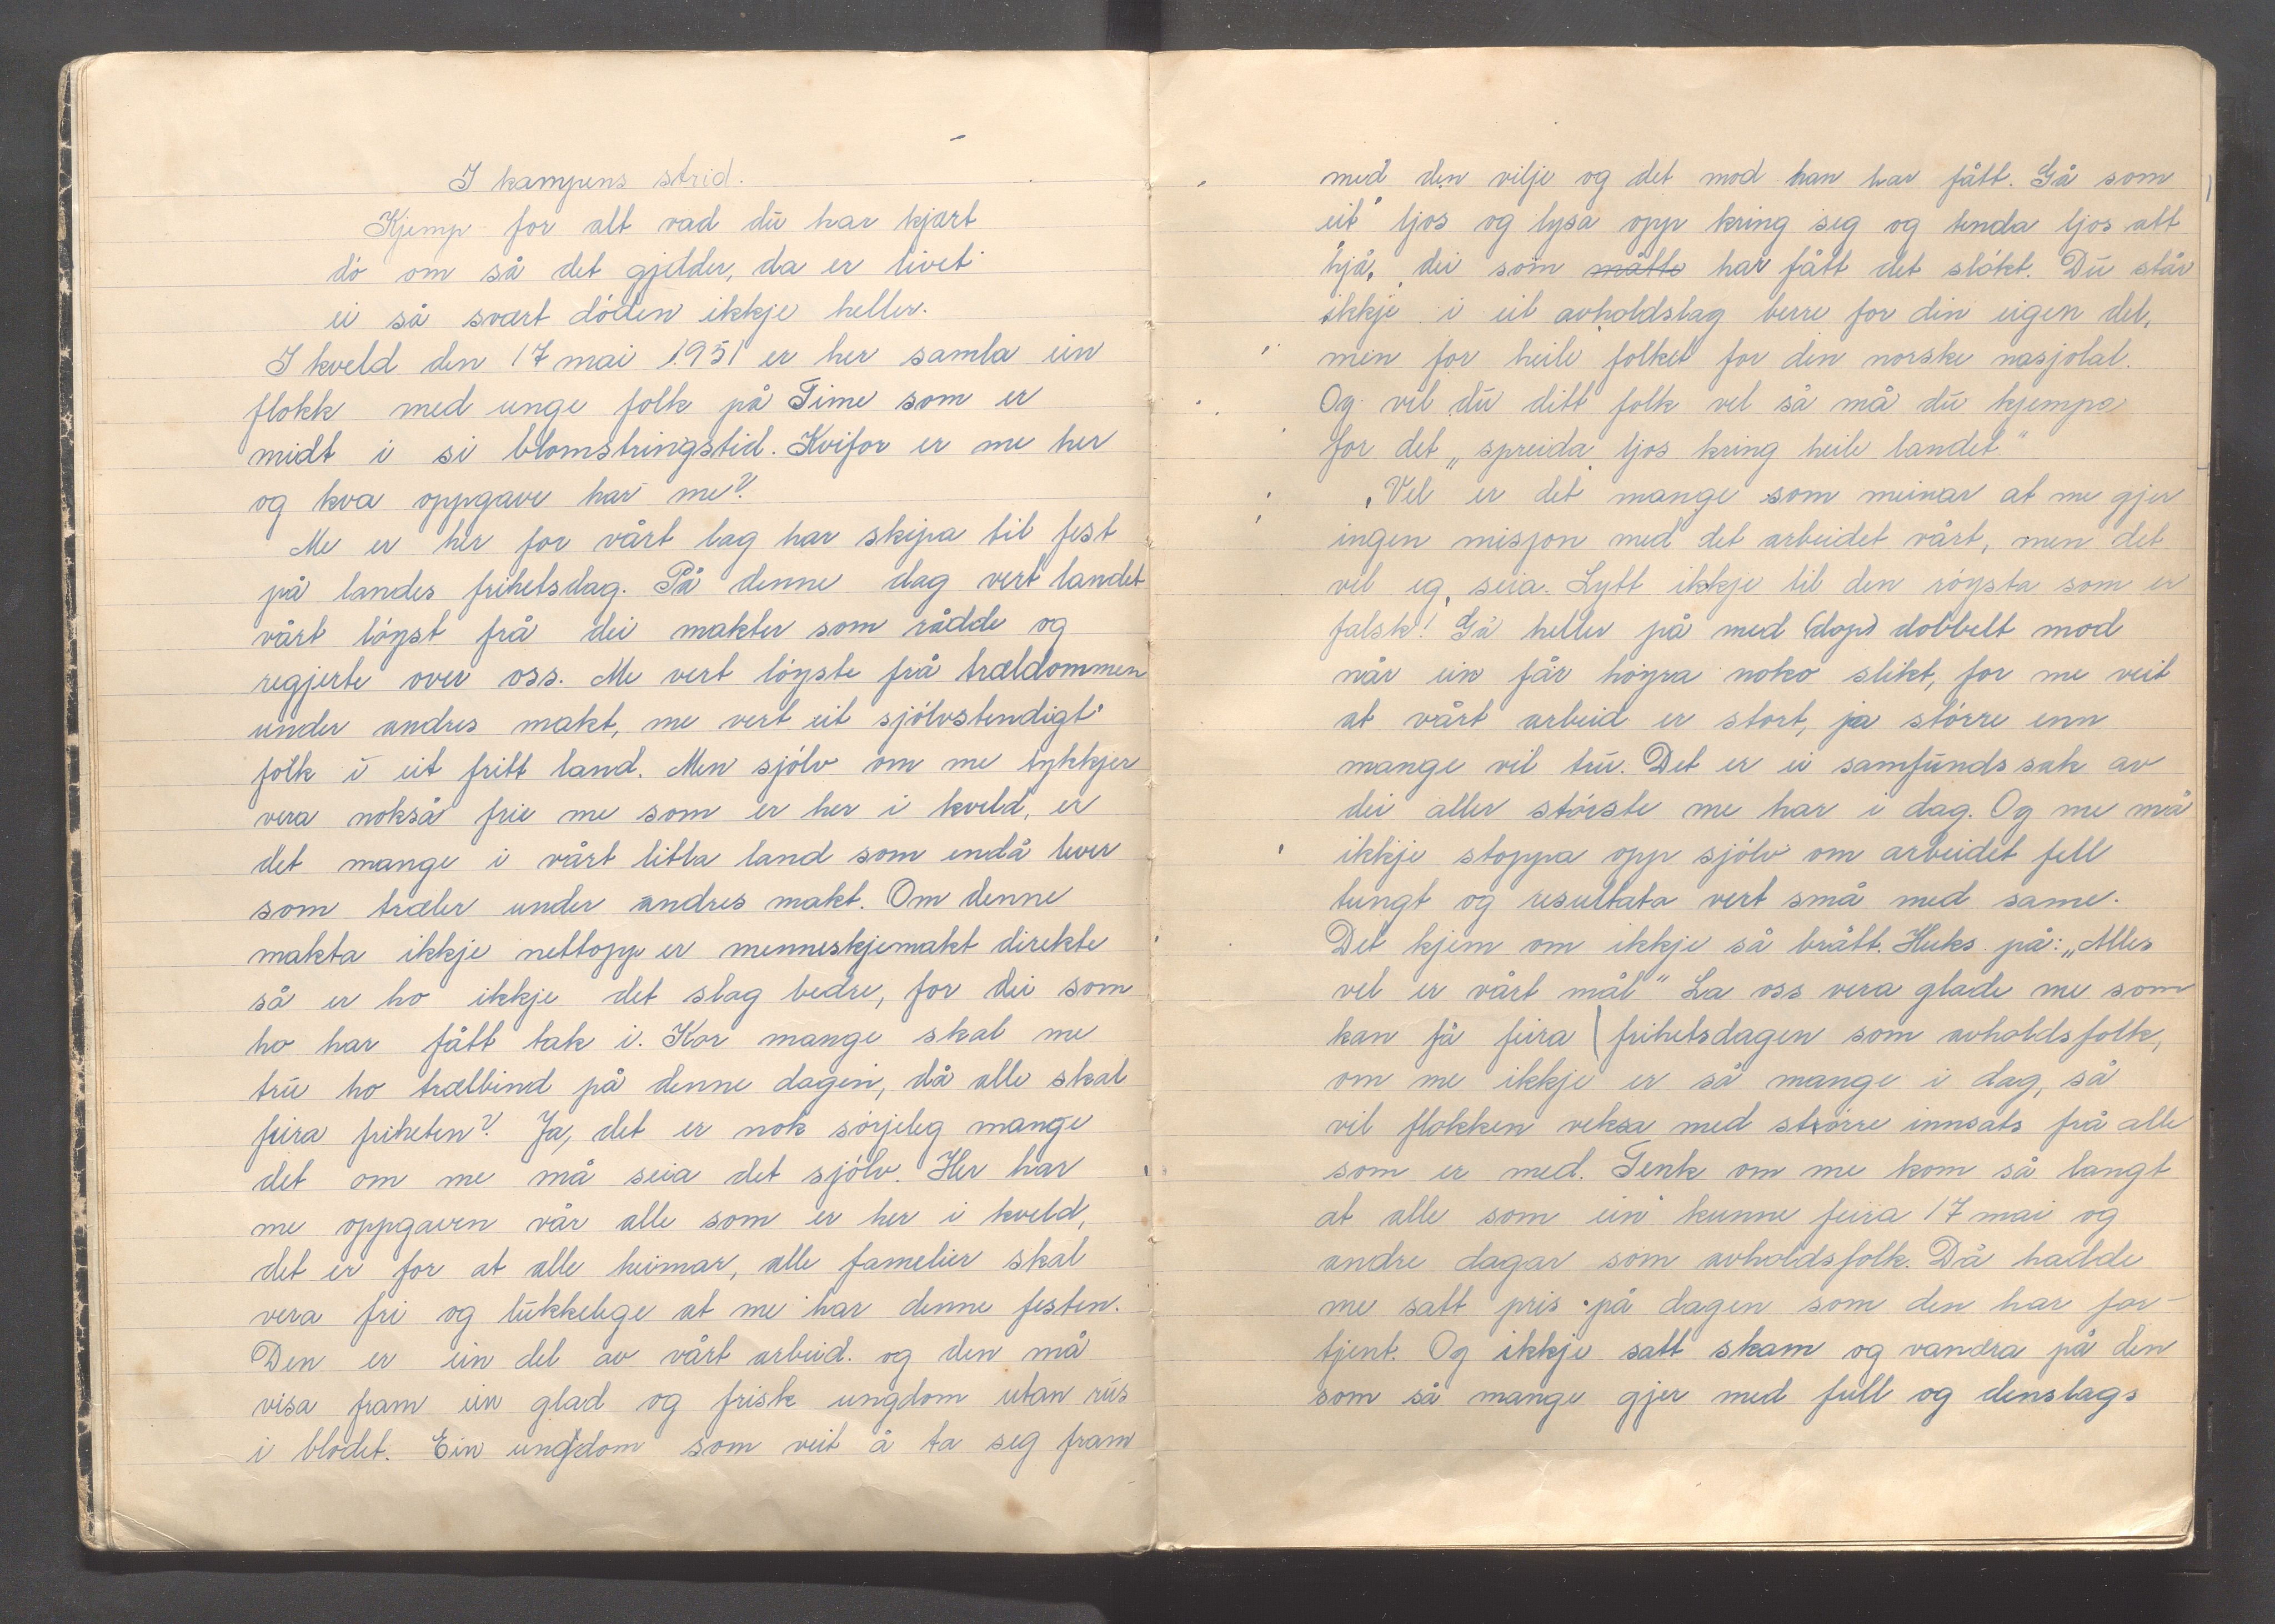 I kampens strid.
Kjemp for alt vad du har kjært
dö om så det gjelder, da er livet
ei så svært döden ikkje heller.
I kveld den 17 mai 1951 er her samla ein
flokk med unge folk på Time som er
midt i si blomstringstid. Kvifor er me her
og kva oppgave har me?
Me er her for vårt lag har skipa til fest
på landes frihetsdag. På denne dag vert landet
vårt löyst frå dei makter som rådde og
regjerte over oss. Me vert löyste frå trældommen
under andres makt, me vert eit sjölvstendigt
folk i eit fritt land. Men sjölv om me tykkjer
vera nokså frie me som er her i kveld, er
det mange i vårt litla land som endå lever
som træler under andres makt. Om denne
makta ikkje nettopp er menneskjemakt direkte
så er ho ikkje det slag bedre, for dei som
ho har fått tak i. Kor mange skal me
tru ho trælbind på denne dagen, då alle skal
feira friheten? Ja, det er nok sörjeleg mange
det om me må seia det sjölv. Her har
me oppgaven vår alle som er her i kveld,
det er for at alle heimar, alle famelier skal
vera fri og lukkelege at me har denne festen.
Den er ein del av vårt arbeid. og den må
visa fram ein glad og frisk ungdom utan rus
i blodet. Ein ungdom som veit å ta seg fram
med den vilje og det mod han har fått. Gå som
eit ljos og lysa opp kring seg og tenda ljos att
hjå, dei som måtte har fått det slökt. Du står
ikkje i eit avholdslag berre for din eigen del,
men for heile folket for den norske nasjolal.
Og vil du ditt folk vel så må du kjempa
for det „spreida ljos kring heile landet"
Vel er det mange som meinar at me gjer
ingen misjon med det arbeidet vårt, men det
vil eg, seia. Lytt ikkje til den röysta som er
falsk! Gå heller på med (dop) dobbelt mod
når ein får höyra noko slikt, for me veit
at vårt arbeid er stort, ja större enn
mange vil tru. Det er ei samfunds sak av
dei aller störste me har i dag. Og me må
ikkje stoppa opp sjölv om arbeidet fell
tungt og resultata vert små med same.
Det kjem om ikkje så brått. Huks på: „Alles
vel er vårt mål" La oss vera glade me som
kan få feira | frihetsdagen som avholdsfolk,
om me ikkje er så mange i dag, så
vil flokken veksa med större innsats frå alle
som er med. Tenk om me kom så langt
at alle som ein kunne feira 17 mai og
andre dagar som avholdsfolk. Då hadde
me satt pris på dagen som den har for-
tjent. Og ikkje satt skam og vandra på den
som så mange gjer med full og denslags